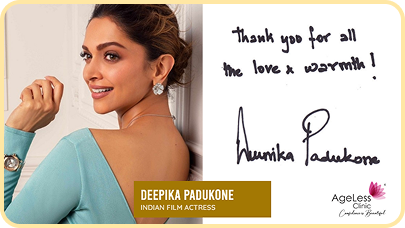 Thank you for all
the love & warmth!
Deepika Padukone
DEEPIKA PADUKONE
INDIAN FILM ACTRESS
AgeLess
Clinic
Confidence is Beautiful